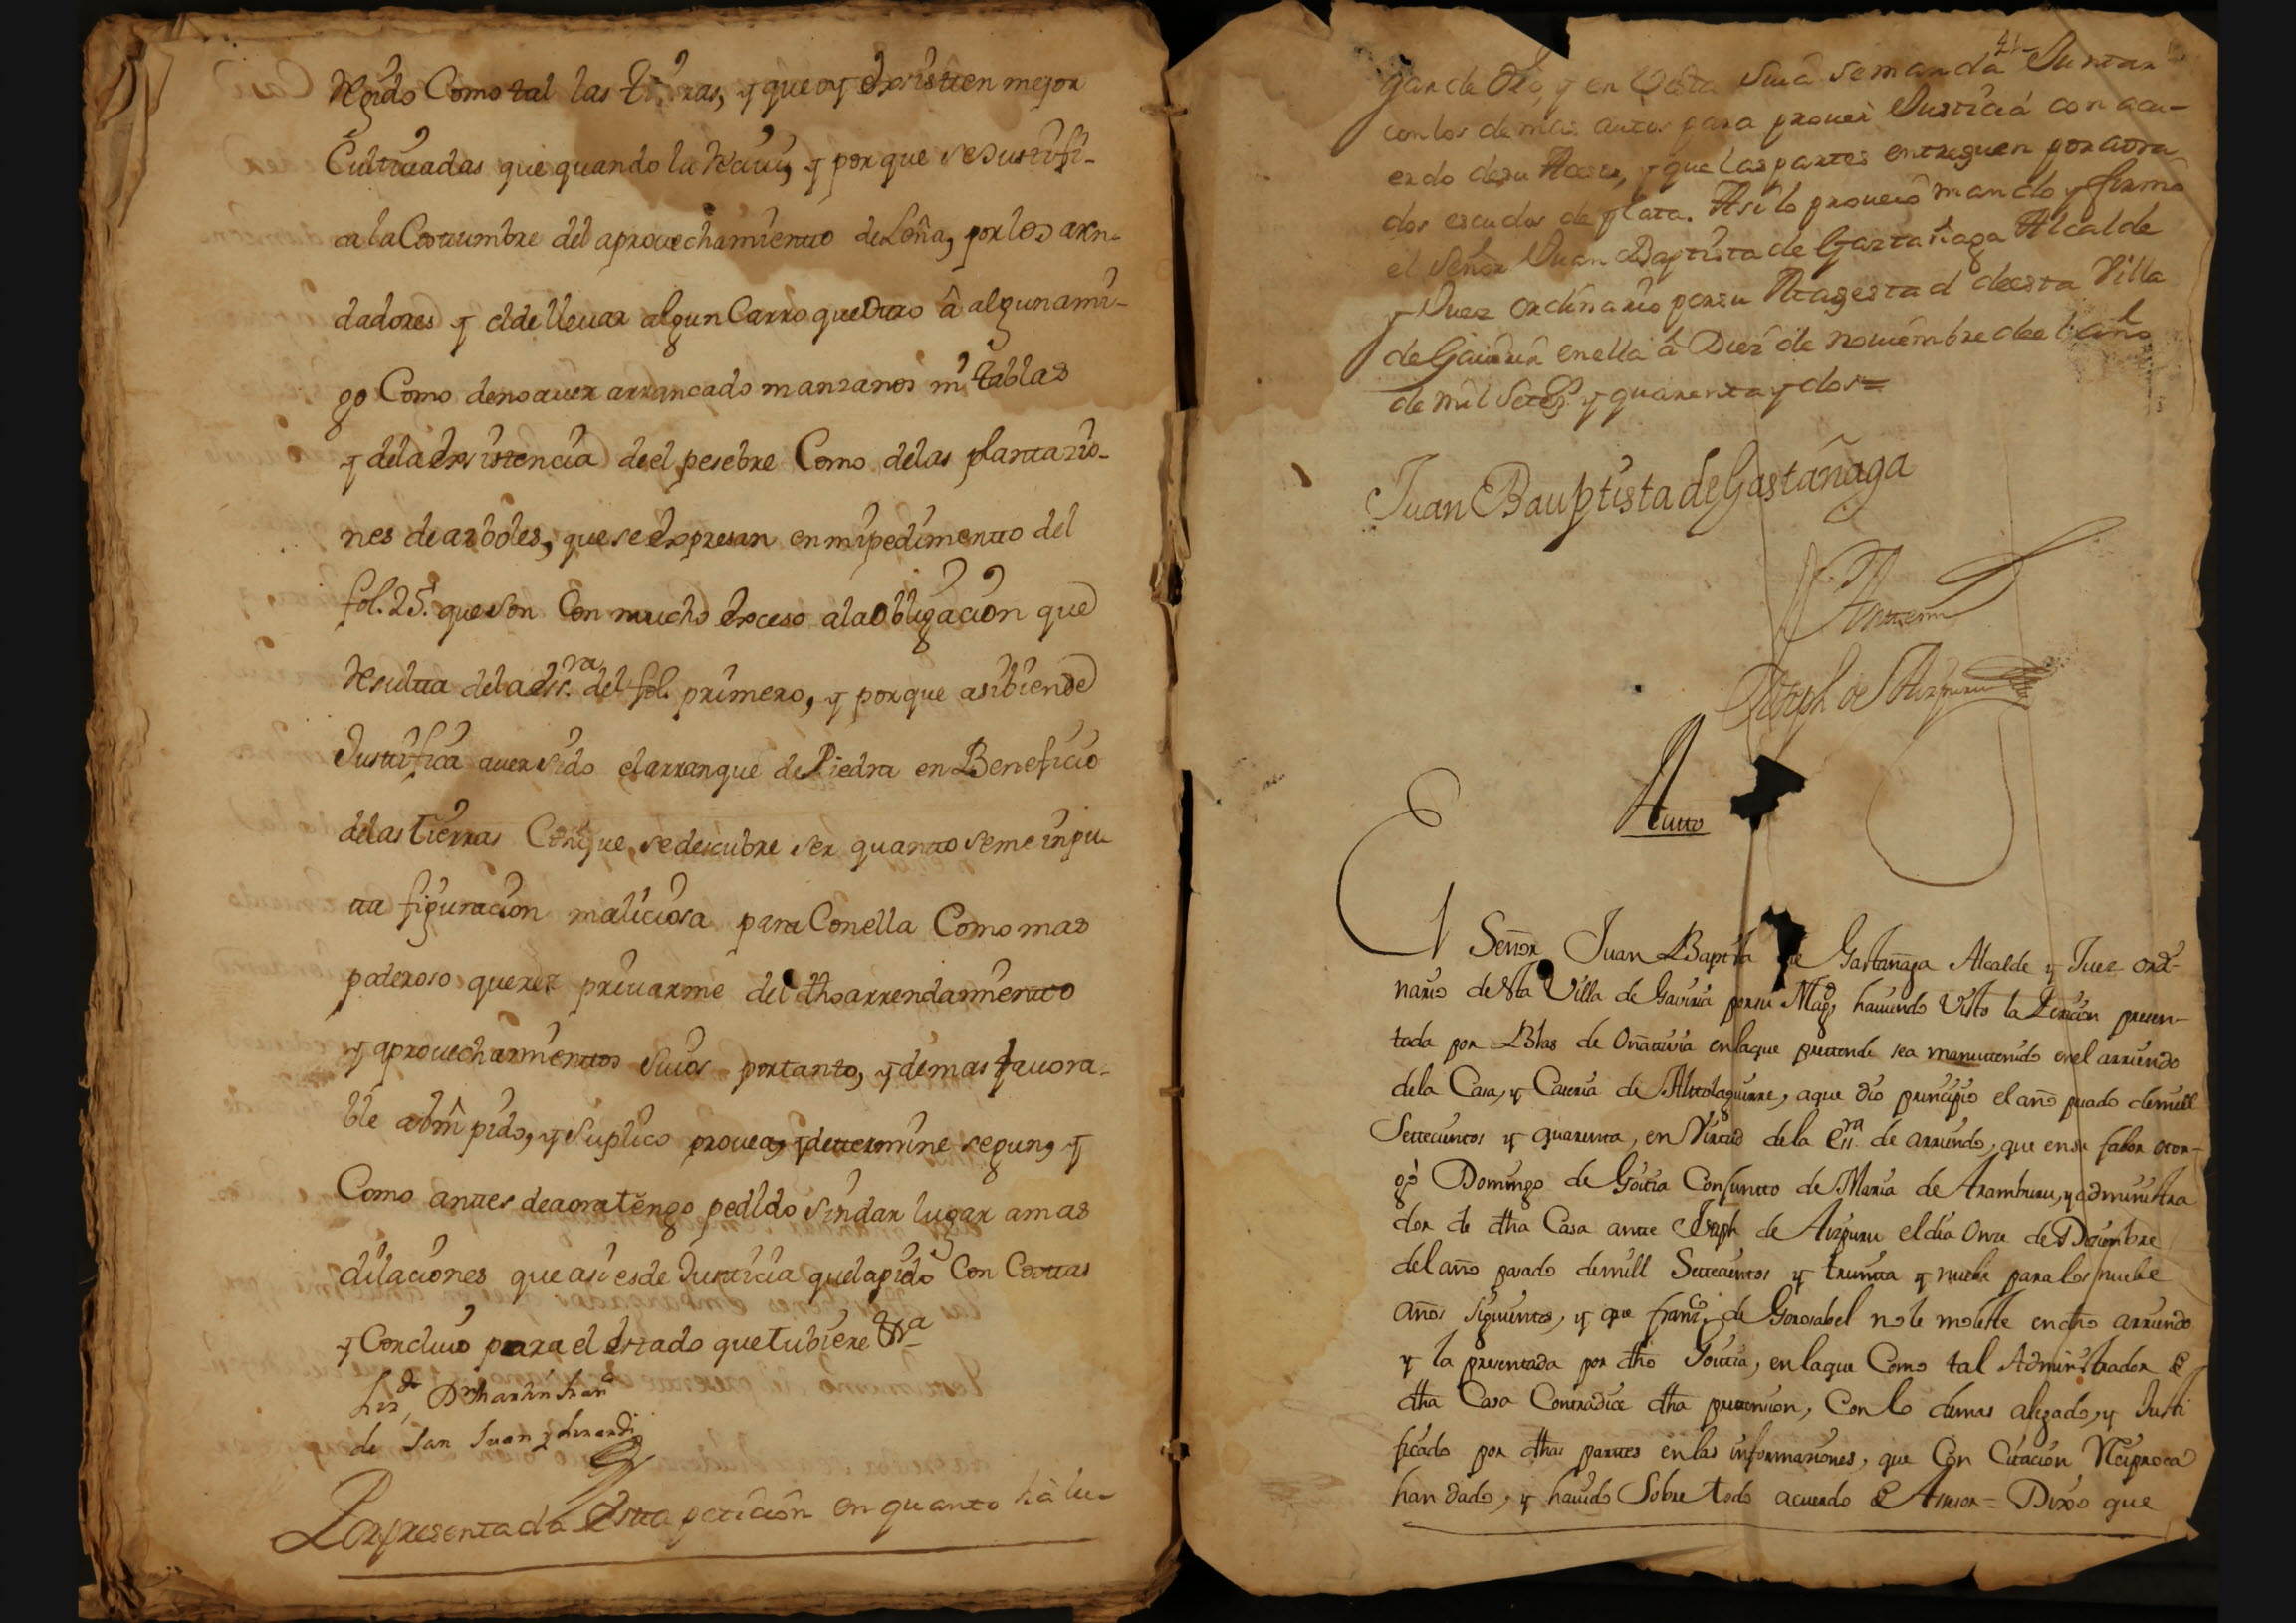 como tal las tierras, y que oy existten mejor
Cultivadas que quando la Reciui, y por que se Justifi-
ca la Costtumbre del aprouechamientto de Leña, por los arn-
dadores y el de lleuar algun Carro que Otro â algun ami-
go Como de no auer arrancado manzanos ni tablas
y de la existtencia de el pesebre Como de las plantazio-
nes de arboles, que se expresan en mi pedimentto del
fol. 25. que son Con mucho exceso a la obligacion que
Resultta de la ess.ra del fol. primero, y porque asi bien se
Justtifica auer sido el arranque de Piedra en Beneficio
de las tierras Conque, se descubre ser quantto se me inpu-
tta figuracion maliciosa para Con ella Como mas
poderoso querer priuarme del dho arrendamientto
y aprouechamienttos suios por tanto, y demas fauora-
ble a Vm pido, y Suplico prouea, y dettermine segun, y
Como anttes de aora tengo pedido sin dar lugar a mas
dilaciones que asi es de Justicia que la pido Con Costtas
y Concluio para el estado que tubiere &ra
Liz.do Dn Martin Fran.co
de San Juan y
Por presentada estta peticion en quanto há lu-
41
gar de Dro, y en Vista Suia se manda Juntar
con los demas autos para proueer Justicia con acu-
erdo de su Asesor, y que las partes entreguen por aora
dos escudos de plata. Asi lo proueio mando y firmó
el Señor Juan Baptista de Gaztañaga Alcalde
y Juez ordinario por su Magestad de esta Villa
de Gauiria en ella â Diez de Nouiembre de el año
de mil Setez.s y quarenta y dos=
Juan Bauptista de Gastañaga
Antemi
Joseph de Aizpuru
Autto
El Señor Juan Baptista de Gastañaga Alcalde y Juez ordi-
nario de esta Villa de Gaviria por su Mag.d, hauiendo Visto la Peticion presen-
tada por Blas de Oñatiuia en la que prettende sea manuttenido en el arriendo
de la Casa, y Caseria de Alttolaguirre, a que dio principio el año pasado de mill
Settecientos y quarenta, en Virtud de la ess.ra de arriendo, que en su fabor otor-
gó Domingo de Goitia Conjuntto de Maria de Aramburu, y administra
dor de dha Casa antte Joseph de Aizpuru el dia Once de Diciembre
del año pasado de mill Settecientos y treintta y nuebe para los nuebe
años siguientes, y que Fran.co de Gorosabel no le moleste en dho arriendo
y la presentada por dho Goitia, en la que Como tal Administrador de
dha Casa Contradice dha prettension, Con lo demas alegado, y Justi
ficado por dhas parttes en las informaziones, que Con Citacion Reciproca
han dado, y hauido Sobre todo acuerdo de Asesor = Dixo que